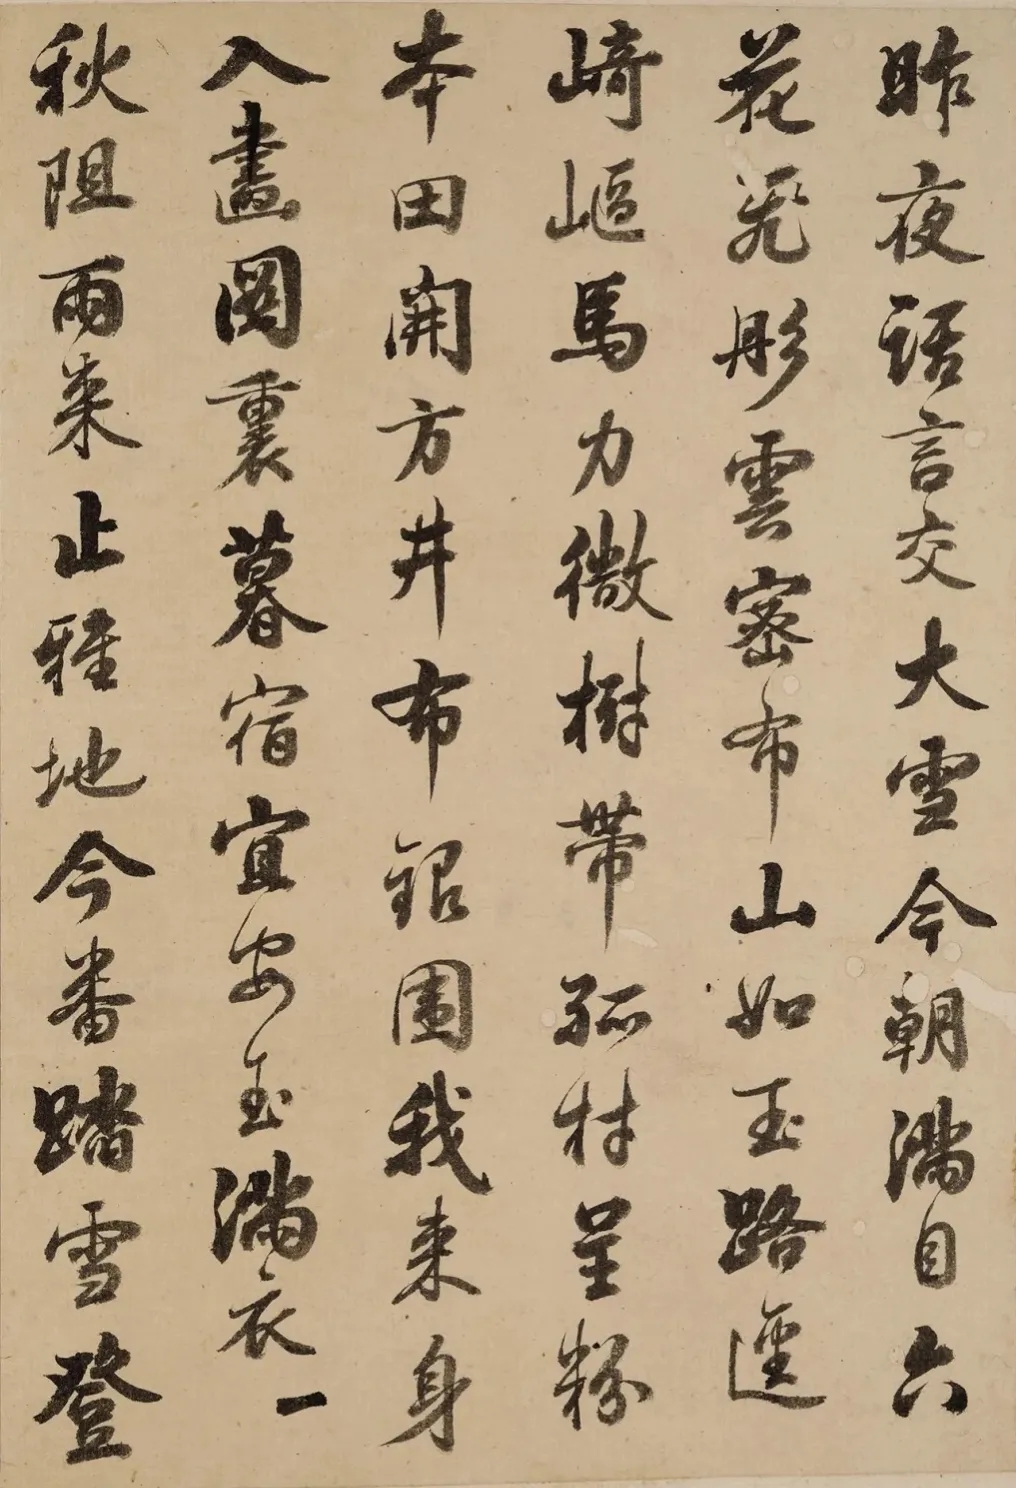 昨夜話言交大雪今朝滿目六
花飛彤雲密布山如玉路逕
崎嶇馬力微樹帶孤村呈粉
本田開方井布銀圍我來身
入畫圖裏暮宿宜安玉滿衣一
秋阻雨来止雅地今番踏雪登